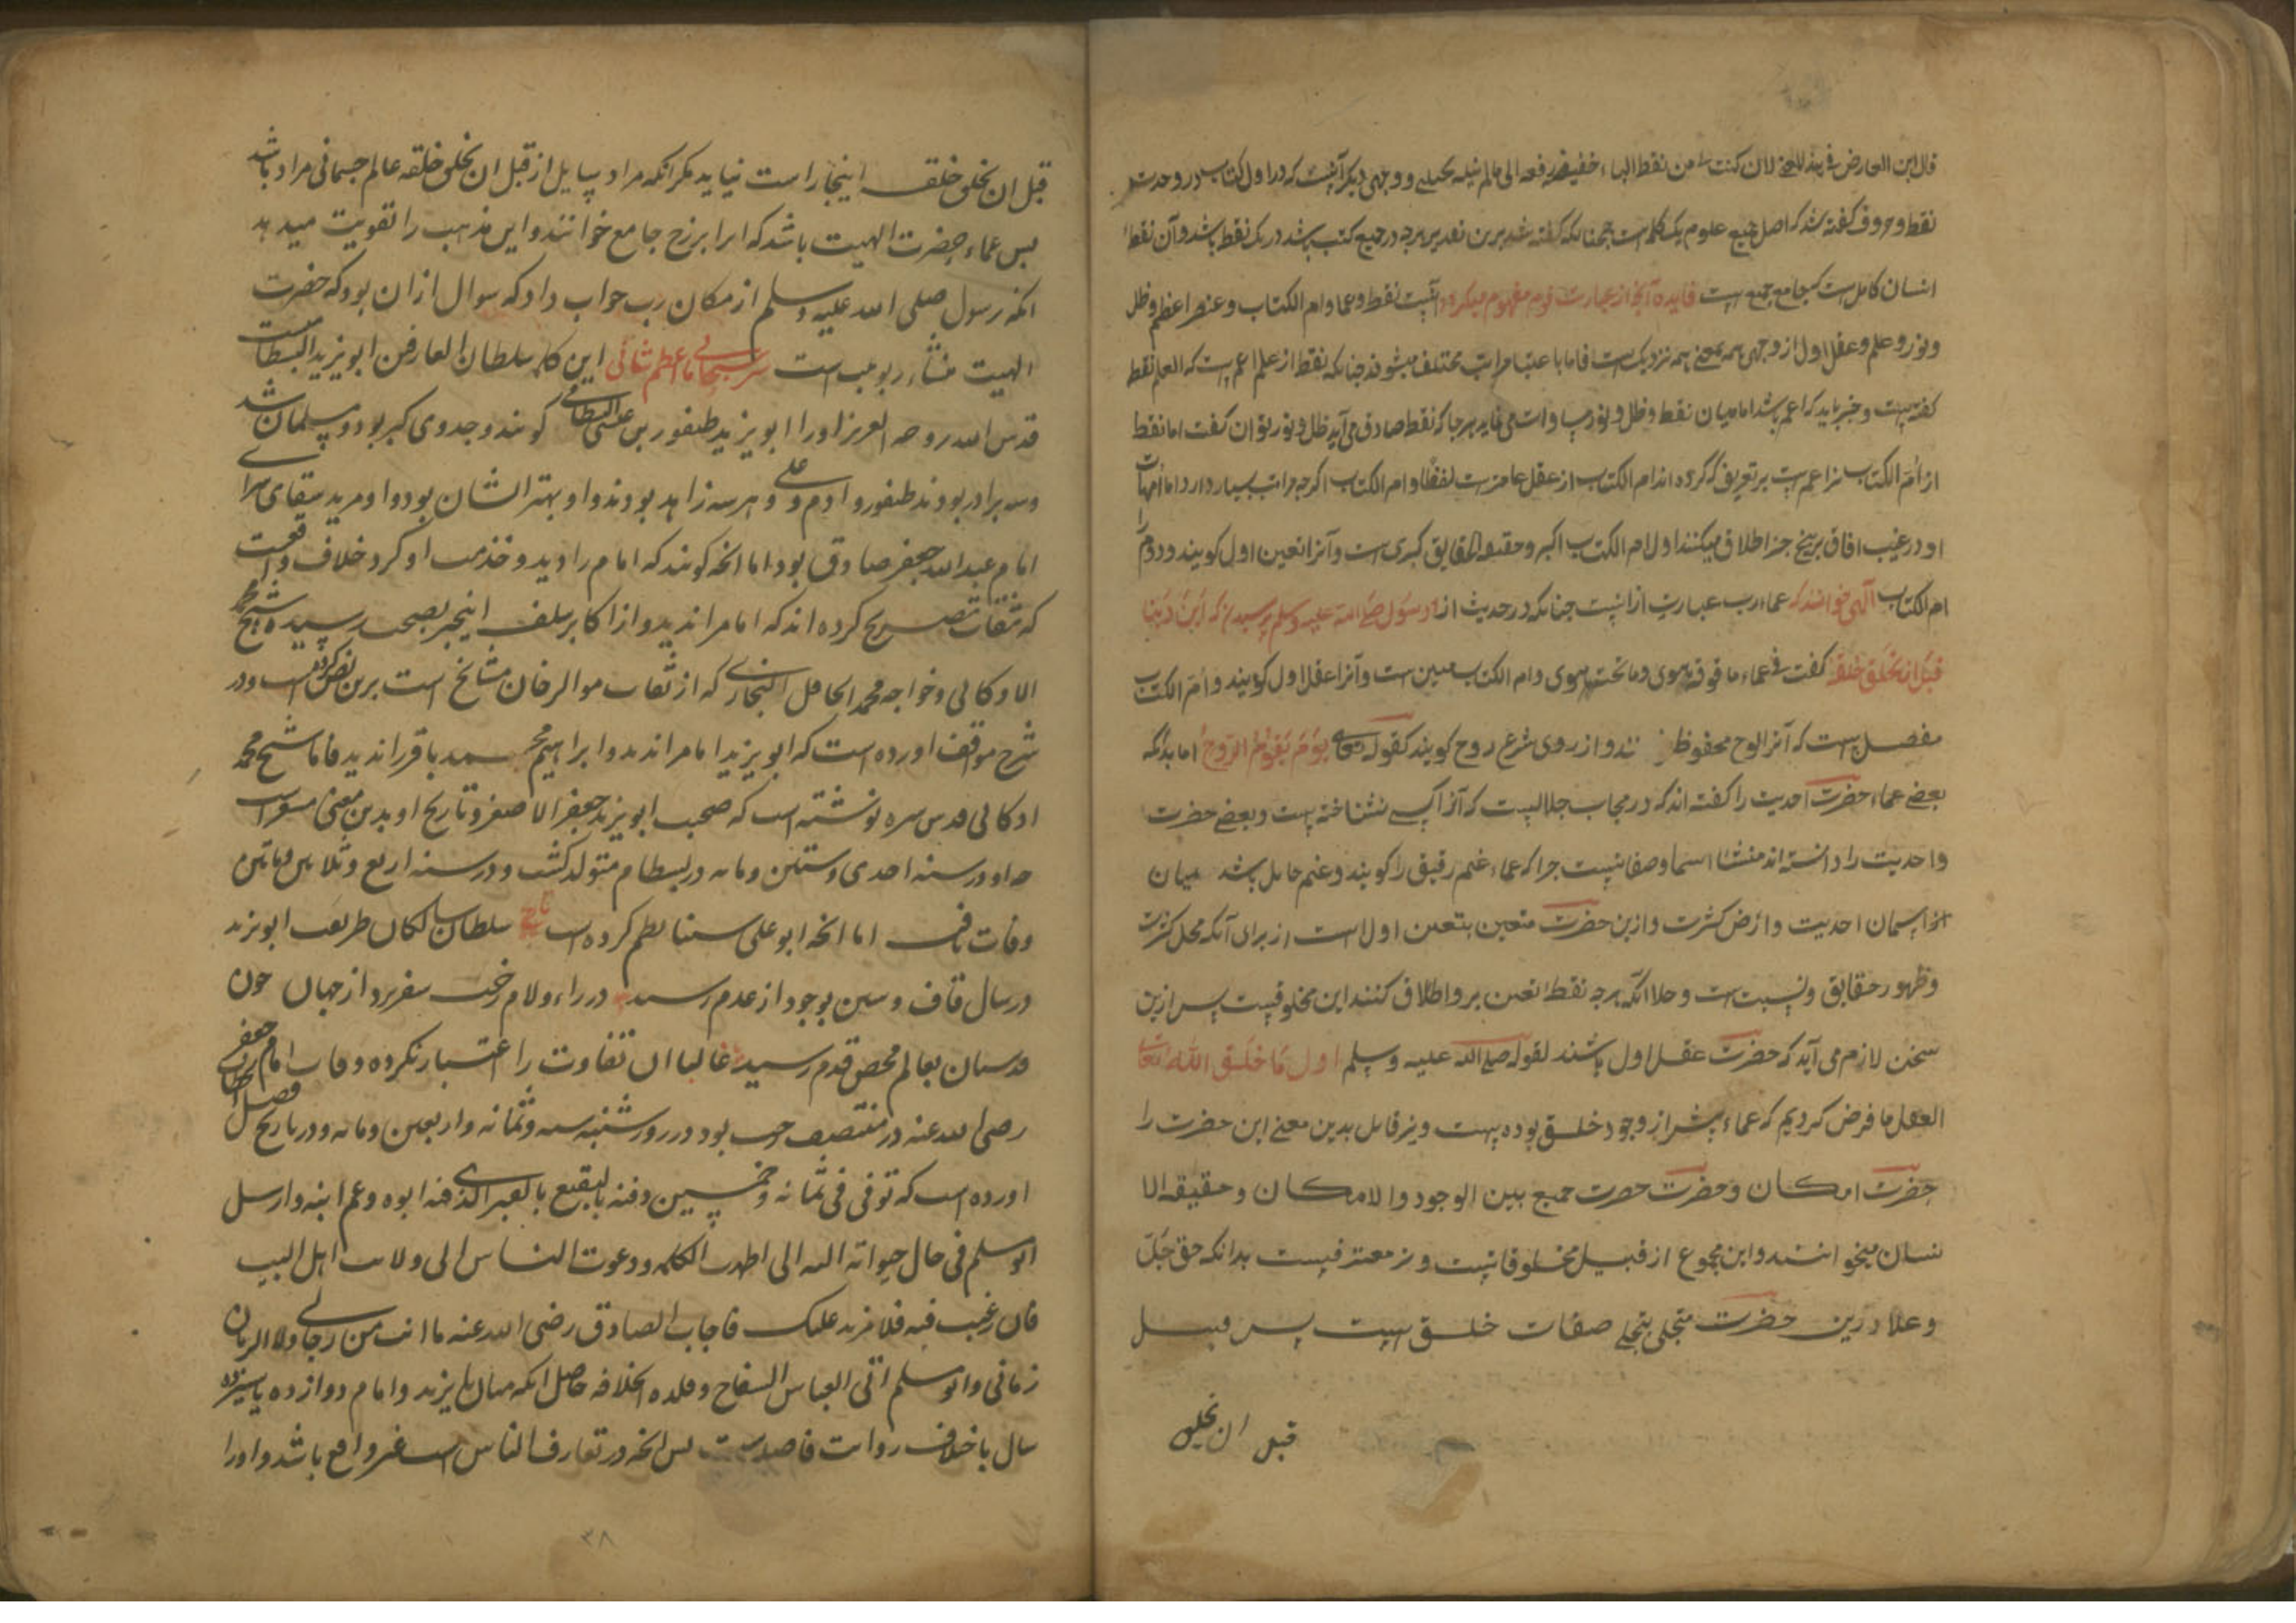 قال ابن الفارض فی هذا المعنی لان کنت من نقط الباء خفیضه رفعه الی مالم تنله بحیله و وجهی دیکر آنست که در اول کتاب در وحدت
نقط و حروف کفته شد که اصل جمیع علوم یک کلمه است همچنانکه کفته شد برین تقدیر هرچه در جمیع کتب باشد در یک نقط باشد و آن نقطه
انسان کامل است که جامع جمیع است فایده آنچه از عبارت قوم مفهوم میکردد آنست نقط و عما و ام الکتاب و عنصر اعظم و ظل
و نور و علم و عقل اول از وجهی همه بمعنی همه نزدیک است فاما باعتبار مراتب مختلف میشوند چنانکه نقط از علم اعم است که العلم نقط
کفته است و خبر باید که اعم باشد اما میان نقط و ظل و نور مساوات می نماید هرجا که نقط صادق می آید ظل و نور توان کفت اما نقط
از ام الکتاب نیز اعم است بر تعریف که کرده اند ام الکتاب از عقل عامتر است لفظا و ام الکتاب اکرچه مراتب بسیار دارد اما امهات
او در غیب افاق بر پنج چیز اطلاق میکنند اول ام الکتاب اکبر و حقیقه الحقایق کبری است و آنرا تعین اول کویند و دوم
ام الکتاب الهی خوانند که عماء رب عبارت از انست چنانکه در حدیث از رسول صلی الله علیه وسلم پرسیدند که این ربنا
قبل ان یخلق خلقه کفت فی عماء ما فوقه هوی وما تحته هوی و ام الکتاب مبین است و آنرا عقل اول کویند و ام الکتاب
مفصل است که آنرا لوح محفوظ و از روی شرع روح کویند کقوله تعالی یوم یقوم الروح اما بدانکه
بعضی عماء حضرت احدیت را کفته اند که در حجاب جلالیست که آنرا کسی نشناخته است و بعضی حضرت
واحدیت را دانسته اند منشاء اسما و صفاتست چرا که عماء غیم رقیق را کویند و غیم حایل باشد میان
اسمان احدیت و ارض کثرت و ازین حضرت متعین بتعین اول است از برای آنکه محل کثرت
و ظهور حقایق و نسبت است و حال آنکه هرچه نقط تعین برو اطلاق کنند این مخلوقیست پس ازین
سخن لازم می آید که حضرت عقل اول باشند لقوله صلی الله علیه وسلم اول ما خلق الله تعالی
العقل ما فرض کردیم که عماء پیشتر از وجود خلق بوده است و نیز قایل بدین معنی این حضرت را
حضرت امکان و حضرت حضرت جمیع بین الوجود والامکان و حقیقه الا
نسان میخوانند و این مجموع از قبیل مخلوقاتست و نیز معترفیست بدانکه حق جل
وعلا درین حضرت متجلی بتجلی صفات خلق است پس قبل
قبل ان یخلق
قبل ان یخلق خلقه اینجا راست نیاید مکر انکه مراد سایل از قبل ان یخلق خلقه عالم جسمانی مراد باشد
پس عماء حضرت الهیت باشد که انرا برزخ جامع خوانند و این مذهب را تقویت میدهد
انکه رسول صلی الله علیه وسلم از مکان رب جواب داد که سوال ازان بود که حضرت
الهیت منشاء ربوبیت است سر سبحانی ما اعظم شانی این کلمه سلطان العارفین ابو یزید البسطامیست
قدس الله روحه العزیز اورا ابو یزید طیفور بن عیسی البسطامی کویند و جد وی کبر بود و مسلمان شد
وسه برادر بودند طیفور و ادم و علی و هر سه زاهد بودند و او بهتر ایشان بود و او مرید سقای سرای
امام عبدالله جعفر صادق بود اما انچه کویند که امام را دید و خدمت او کرد خلاف واقعست
که ثقات تصریح کرده اند که امام را ندید و از اکابر سلف اینخبر بصحت رسیده شیخ محمد
الاوکانی و خواجه محمد الحافظ البخاری که از ثقات موالرخان مشایخ است برین نص کرده است و در
شرح مواقف اورده است که ابو یزید امام را ندید و ابراهیم محمد باقر را ندید فاما شیخ محمد
اوکانی قدس سره نوشته است که صحب ابو یزید جعفر الاصغر و تاریخ او بدین معنی مشعر است
که او در سنه احدی و ستین و مایه در بسطام متولد کشت و در سنه اربع و ثلاثین و مایتین
وفات یافت اما انچه ابو علی سینا نظم کرده است تاریخ سلطان سالکان طریقت ابو یزید
در سال قاف و سین بوجود از عدم رسید در راء و لام رخت سفر برد از جهان چون
قدسیان بعالم محض قدم رسید غالبا ان تفاوت را اعتبار نکرده وفات امام جعفر
رضی الله عنه در منتصف رجب بود در روز شنبه سنه و ثمانه واربعین و مایه و در تاریخ فصل الخطاب
اورده است که توفی فی ثمانه وخمسین ودفنه بالبقیع بالقبر الذی فیه ابوه وعم ابیه وارسل
ابو مسلم فی حال حیواته الیه انی اظهرت الکلمه ودعوت الناس الی ولایت اهل البیت
فان رغبت فیه فلا مزید علیک فاجاب الصادق رضی الله عنه ما انت من رجالی ولا الزمان
زمانی وابو مسلم اتی العباس السفاح وقلده الخلافه حاصل انکه میان با یزید و امام دوازده یا سیزده
سال باختلاف روایت فاصله است پس انچه در تعارف الناس است غیر واقع باشد و اورا
۳۸